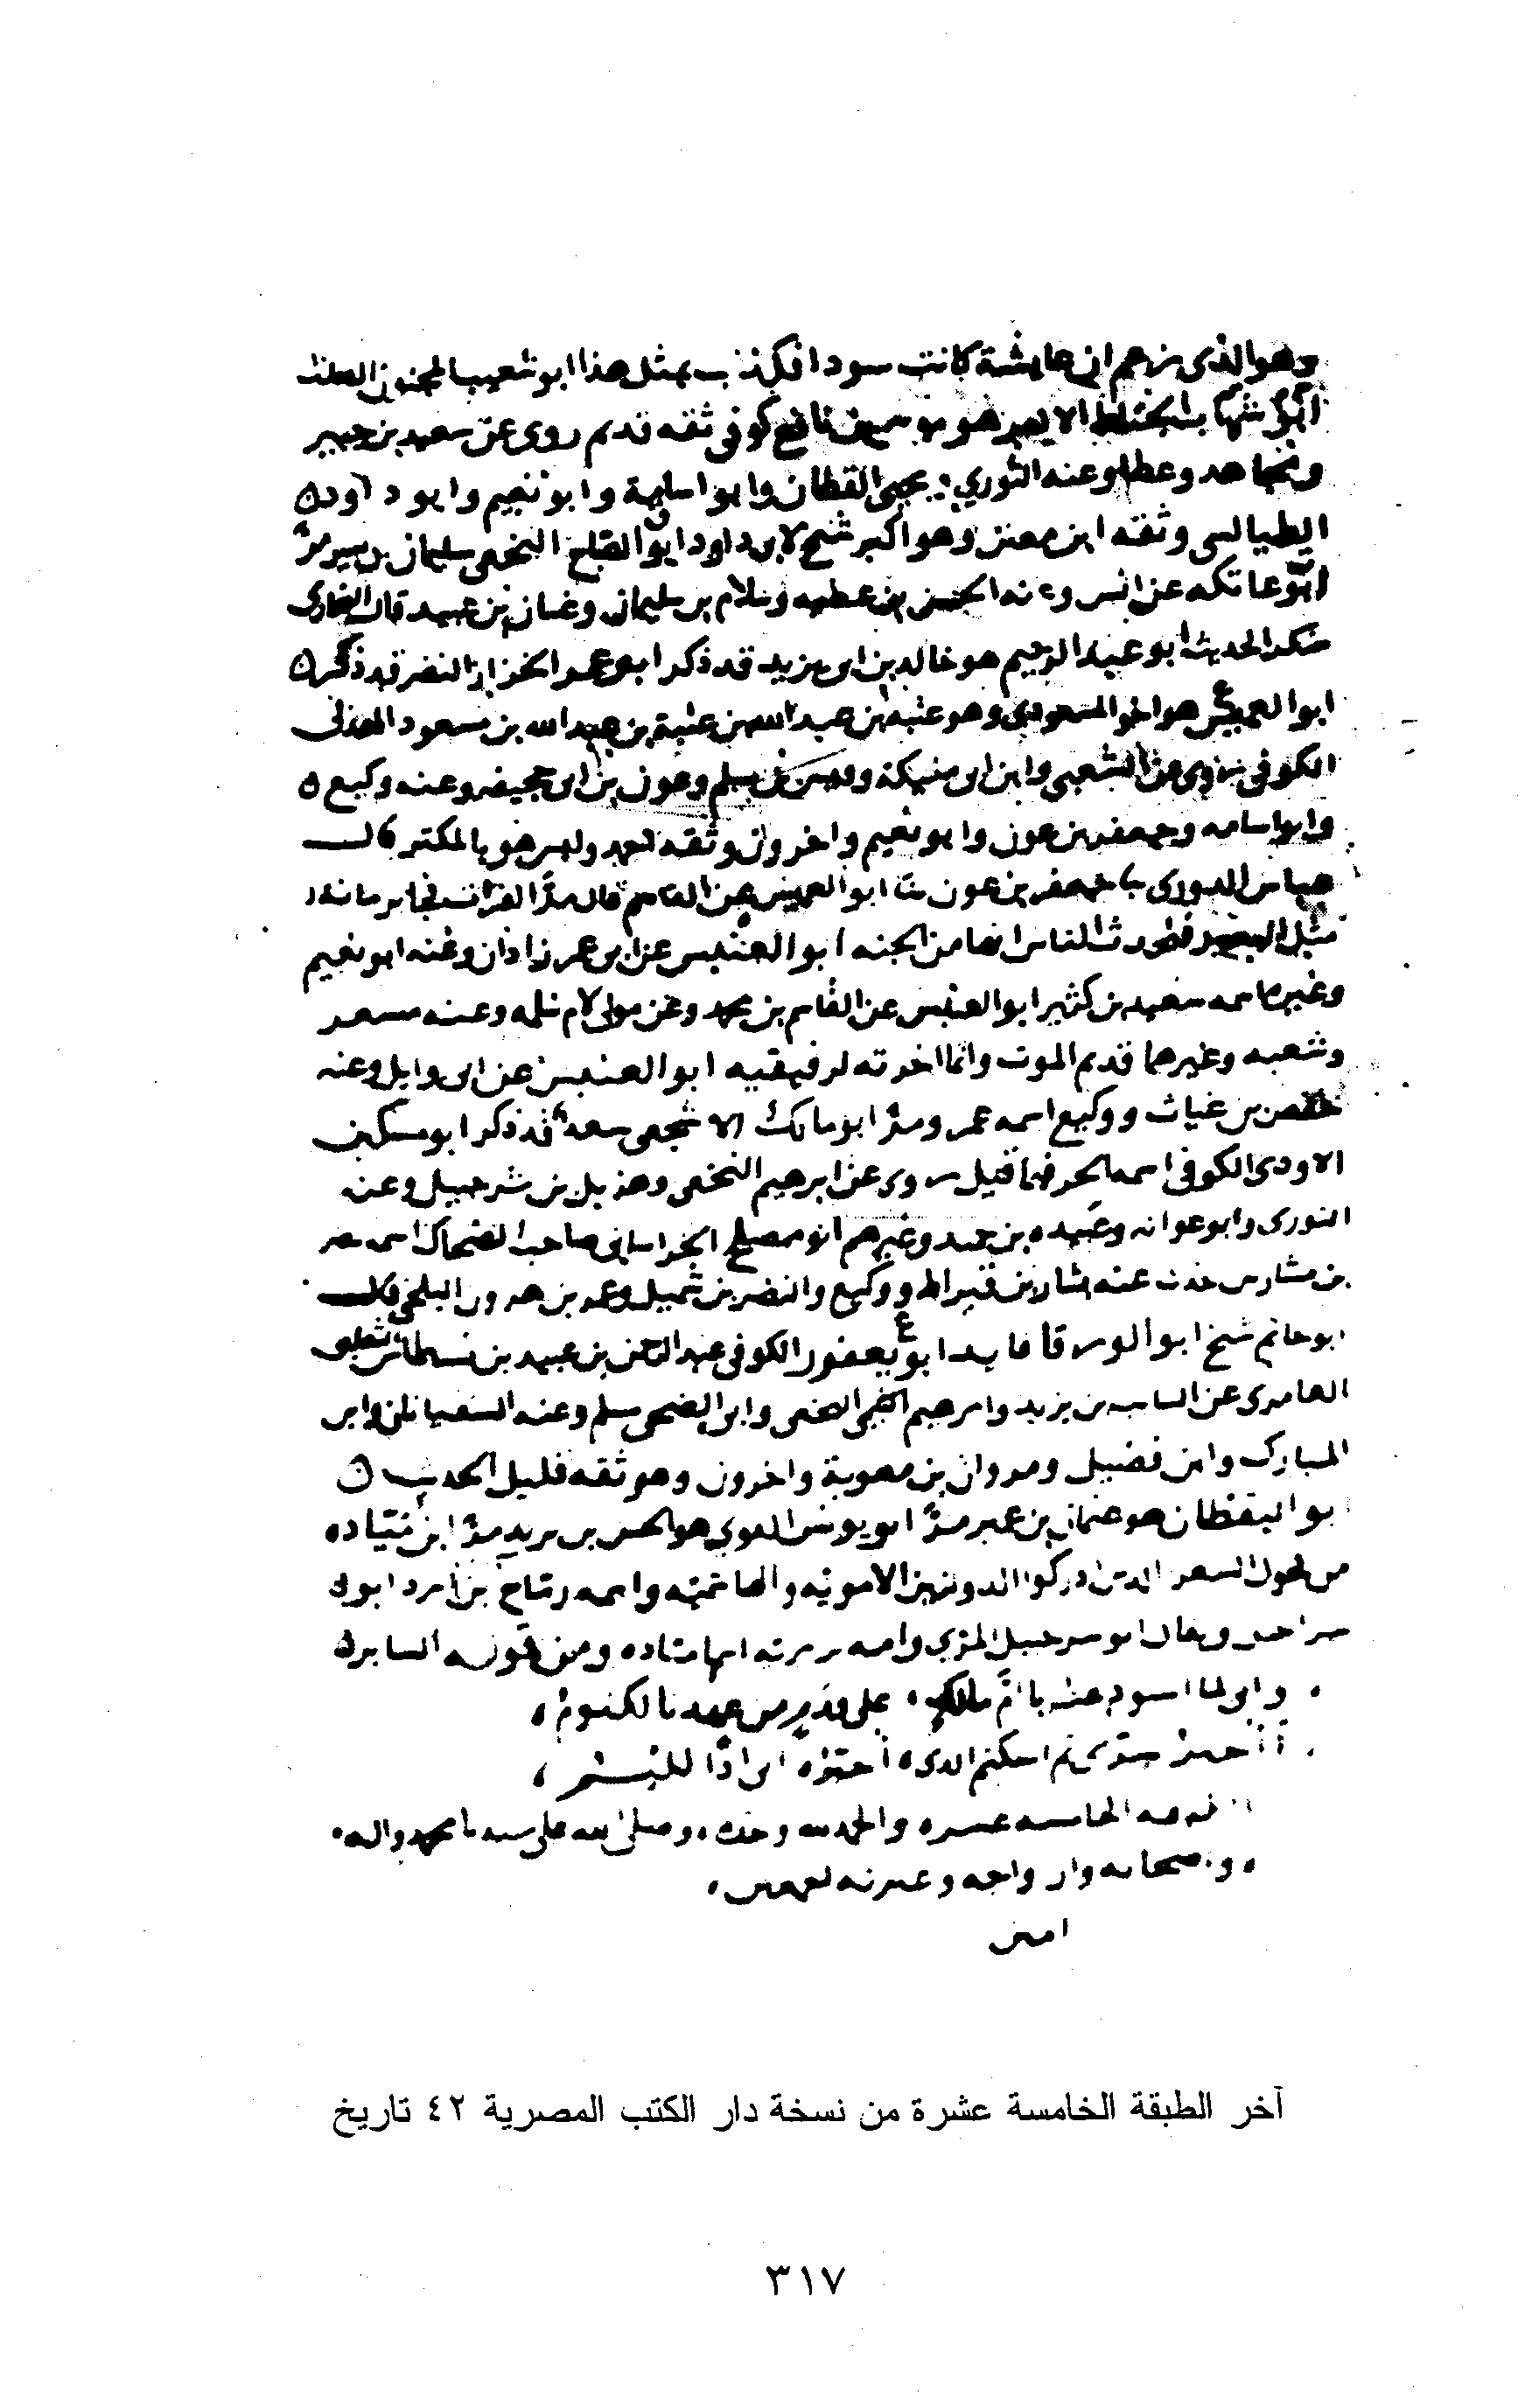 وهو الذى زعم ان عايشة كانت سودا فكذب بمثل هذا ابو شعيب المجنون الصلت
ابو شهاب الحناط الاكبر هو موسى بن نافع كوفى ثقه قديم روى عن سعيد بن جبير
ومجاهد وعطا وعنه الثوري ويحيى القطان وابو اسامة وابو نعيم وابو داود
الطيالسى وثقه ابن معين وهو اكبر شيخ لابى داود ابو الصباح النخعى سليمان بن يسير مرّ
ابو عاتكه عن انس وعنه الحسن بن عطيه وسلام بن سليمان وغسان بن عبيد قال البخارى
منكر الحديث ابو عبد الرحيم هو خالد بن ابى يزيد قد ذكر ابو عمر الخزاز النضر قد ذكر
ابو العميس هو اخو المسعودى وهو عتبه بن عبد الله بن عتبة بن عبد الله بن مسعود الهذلى
الكوفى روى عن الشعبى وابن ابى مليكة وقيس بن مسلم وعون بن ابى جحيفه وعنه وكيع
وابو اسامه وجعفر بن عون وابو نعيم واخرون وثقه احمد وليس هو بالمكثر قال
عباس الدورى ثنا جعفر بن عون ثنا ابو العميس عن القاسم قال مدّ الفرات فجا برمانة
مثل البعير فتحدث الناس انها من الجنه ابو العنبس عن ابى عمر زاذان وعنه ابو نعيم
وغيره اسمه سعيد بن كثير ابو العنبس عن القاسم بن محمد وعن مولى لام سلمه وعنه مسعر
وشعبه وغيرهما قديم الموت وانما اخرته لرفيقيه ابو العنبس عن ابى وايل وعنه
حفص بن غياث ووكيع اسمه عمرو مرّ ابو مالك الاشجعى سعد قد ذكر ابو مسكين
الاودى الكوفى اسمه الحر فيما قيل روى عن ابرهيم النخعى وهذيل بن شرحبيل وعنه
الثورى وابو عوانه وعبيده بن حميد وغيرهم ابو مصلح الخراسانى صاحب الضحاك اسمه نصر
بن مشارس حدث عنه بشار بن قيراط ووكيع والنضر بن شميل وعمر بن هرون البلخى قال
ابو حاتم شيخ ابو الورقا فايد ابو يعفور الكوفى عبد الرحمن بن عبيد بن نسطاس الثعلبى
العامرى عن السايب بن يزيد وابرهيم النخعى وابى الضحى مسلم وعنه السفيانان وابن
المبارك وابن فضيل ومروان بن معوية واخرون وهو ثقه قليل الحديث
ابو اليقظان هو عثمان بن عمير مرّ ابو يونس القوي هو الحسن بن يزيد مرّ ابن ميّاده
من فحول الشعرا الذين ادركوا الدولتين الامويه والهاشميه واسمه رمّاح بن ابرد ابو
شراحيل ويقال ابو شرحبيل المزى وامه بربرته اسمها ميّاده ومن قوله الساير
وانى لما استودعته يا امّ مالك على قدم من عهدنا لكتوم
اخر الطبقه الخامسه عشره والحمد لله وحده وصلى الله على سيدنا محمد واله
وصحابه وازواجه وعترته اجمعين
امين
آخر الطبقة الخامسة عشرة من نسخة دار الكتب المصرية ٤٢ تاريخ
٣١٧